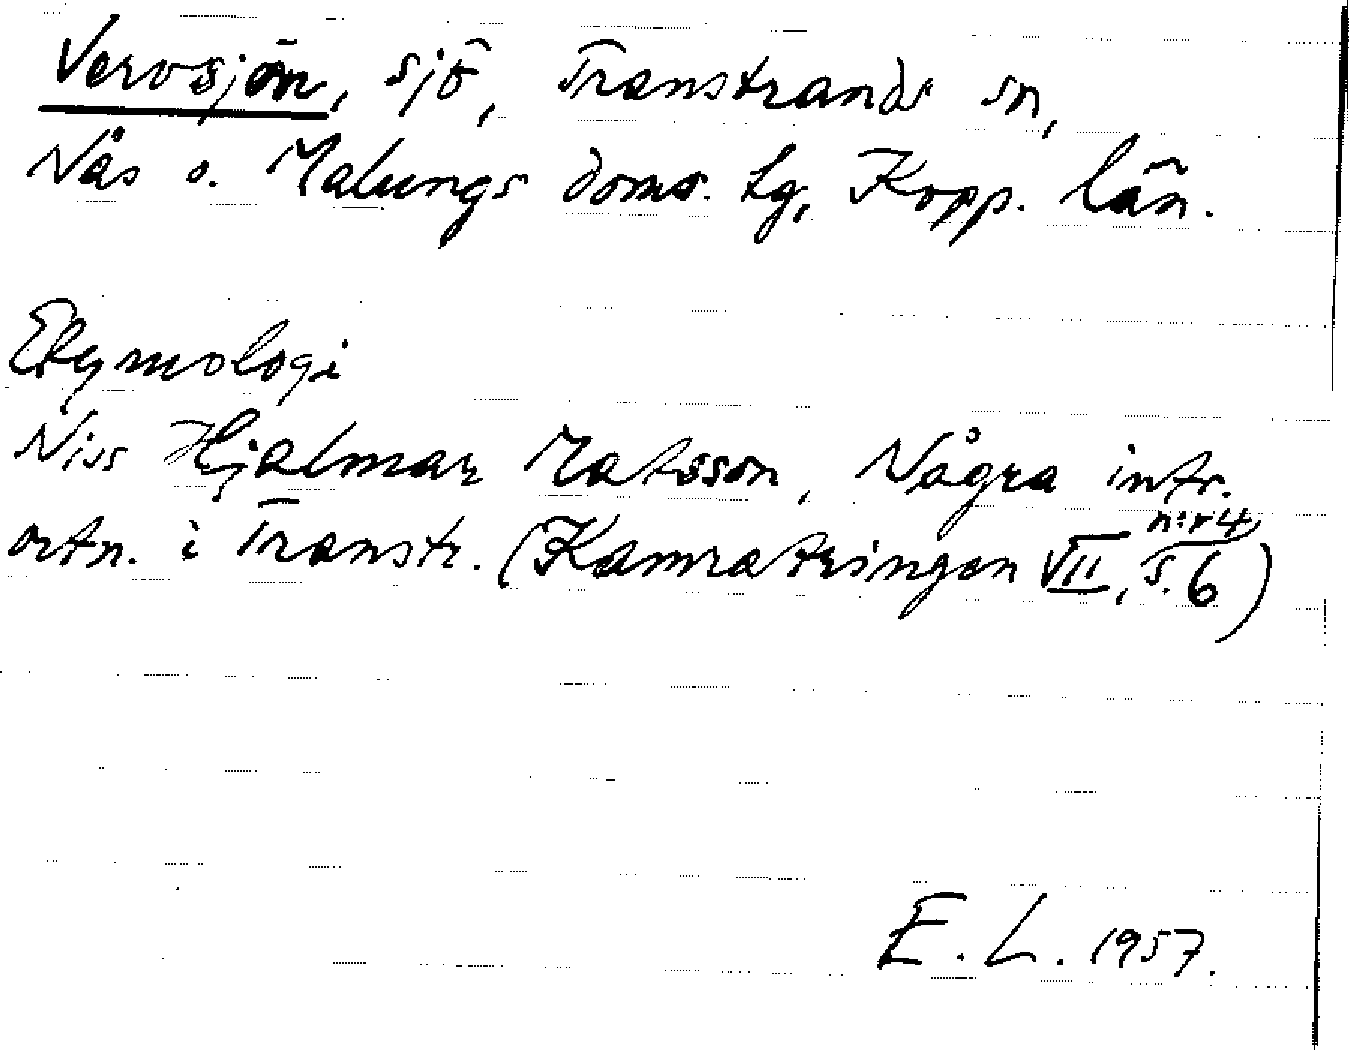 Verosjön, sjö, Transtrands sn,
Nås o. Malungs doms. lg, Kopp. län.
Etymologi
Niss Hjalmar Matsson, Några intr.
ortn. i Transtr. (Kamratringen VII, n:r 4, s. 6)
E. L. 1957.